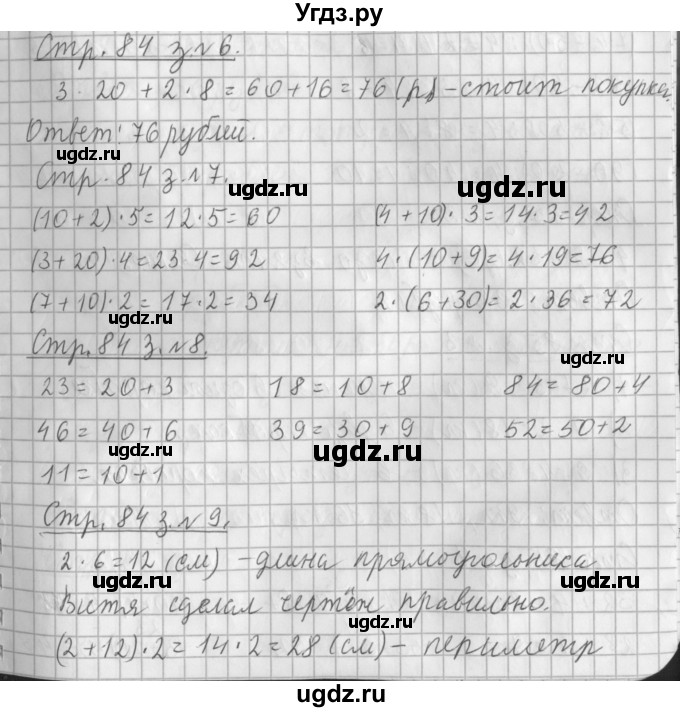 Угдз.ру
Стр. 84 з.№6.
3 · 20 + 2 · 8 = 60 + 16 = 76 (р.) – стоит покупка.
Ответ: 76 рублей.
ugdz.ru
ugdz.ru
ugdz.ru
Стр. 84 з.№7.
(10 + 2) · 5 = 12 · 5 = 60 (4 + 10) · 3 = 14 · 3 = 42
(3 + 20) · 4 = 23 · 4 = 92 4 · (10 + 9) = 4 · 19 = 76
(7 + 10) · 2 = 17 · 2 = 34 2 · (6 + 30) = 2 · 36 = 72
ugdz.ru
Стр. 84 з.№8.
ugdz.ru
23 = 20 + 3 18 = 10 + 8 84 = 80 + 4
46 = 40 + 6 39 = 30 + 9 52 = 50 + 2
ugdz.ru
11 = 10 + 1
Стр. 84 з.№9.
2 · 6 = 12 (см) – длина прямоугольника
ugdz.ru
ugdz.ru
Витя сделал чертёж правильно.
ugdz.ru
(2 + 12) · 2 = 14 · 2 = 28 (см) – периметр
ugdz.ru
ugdz.ru